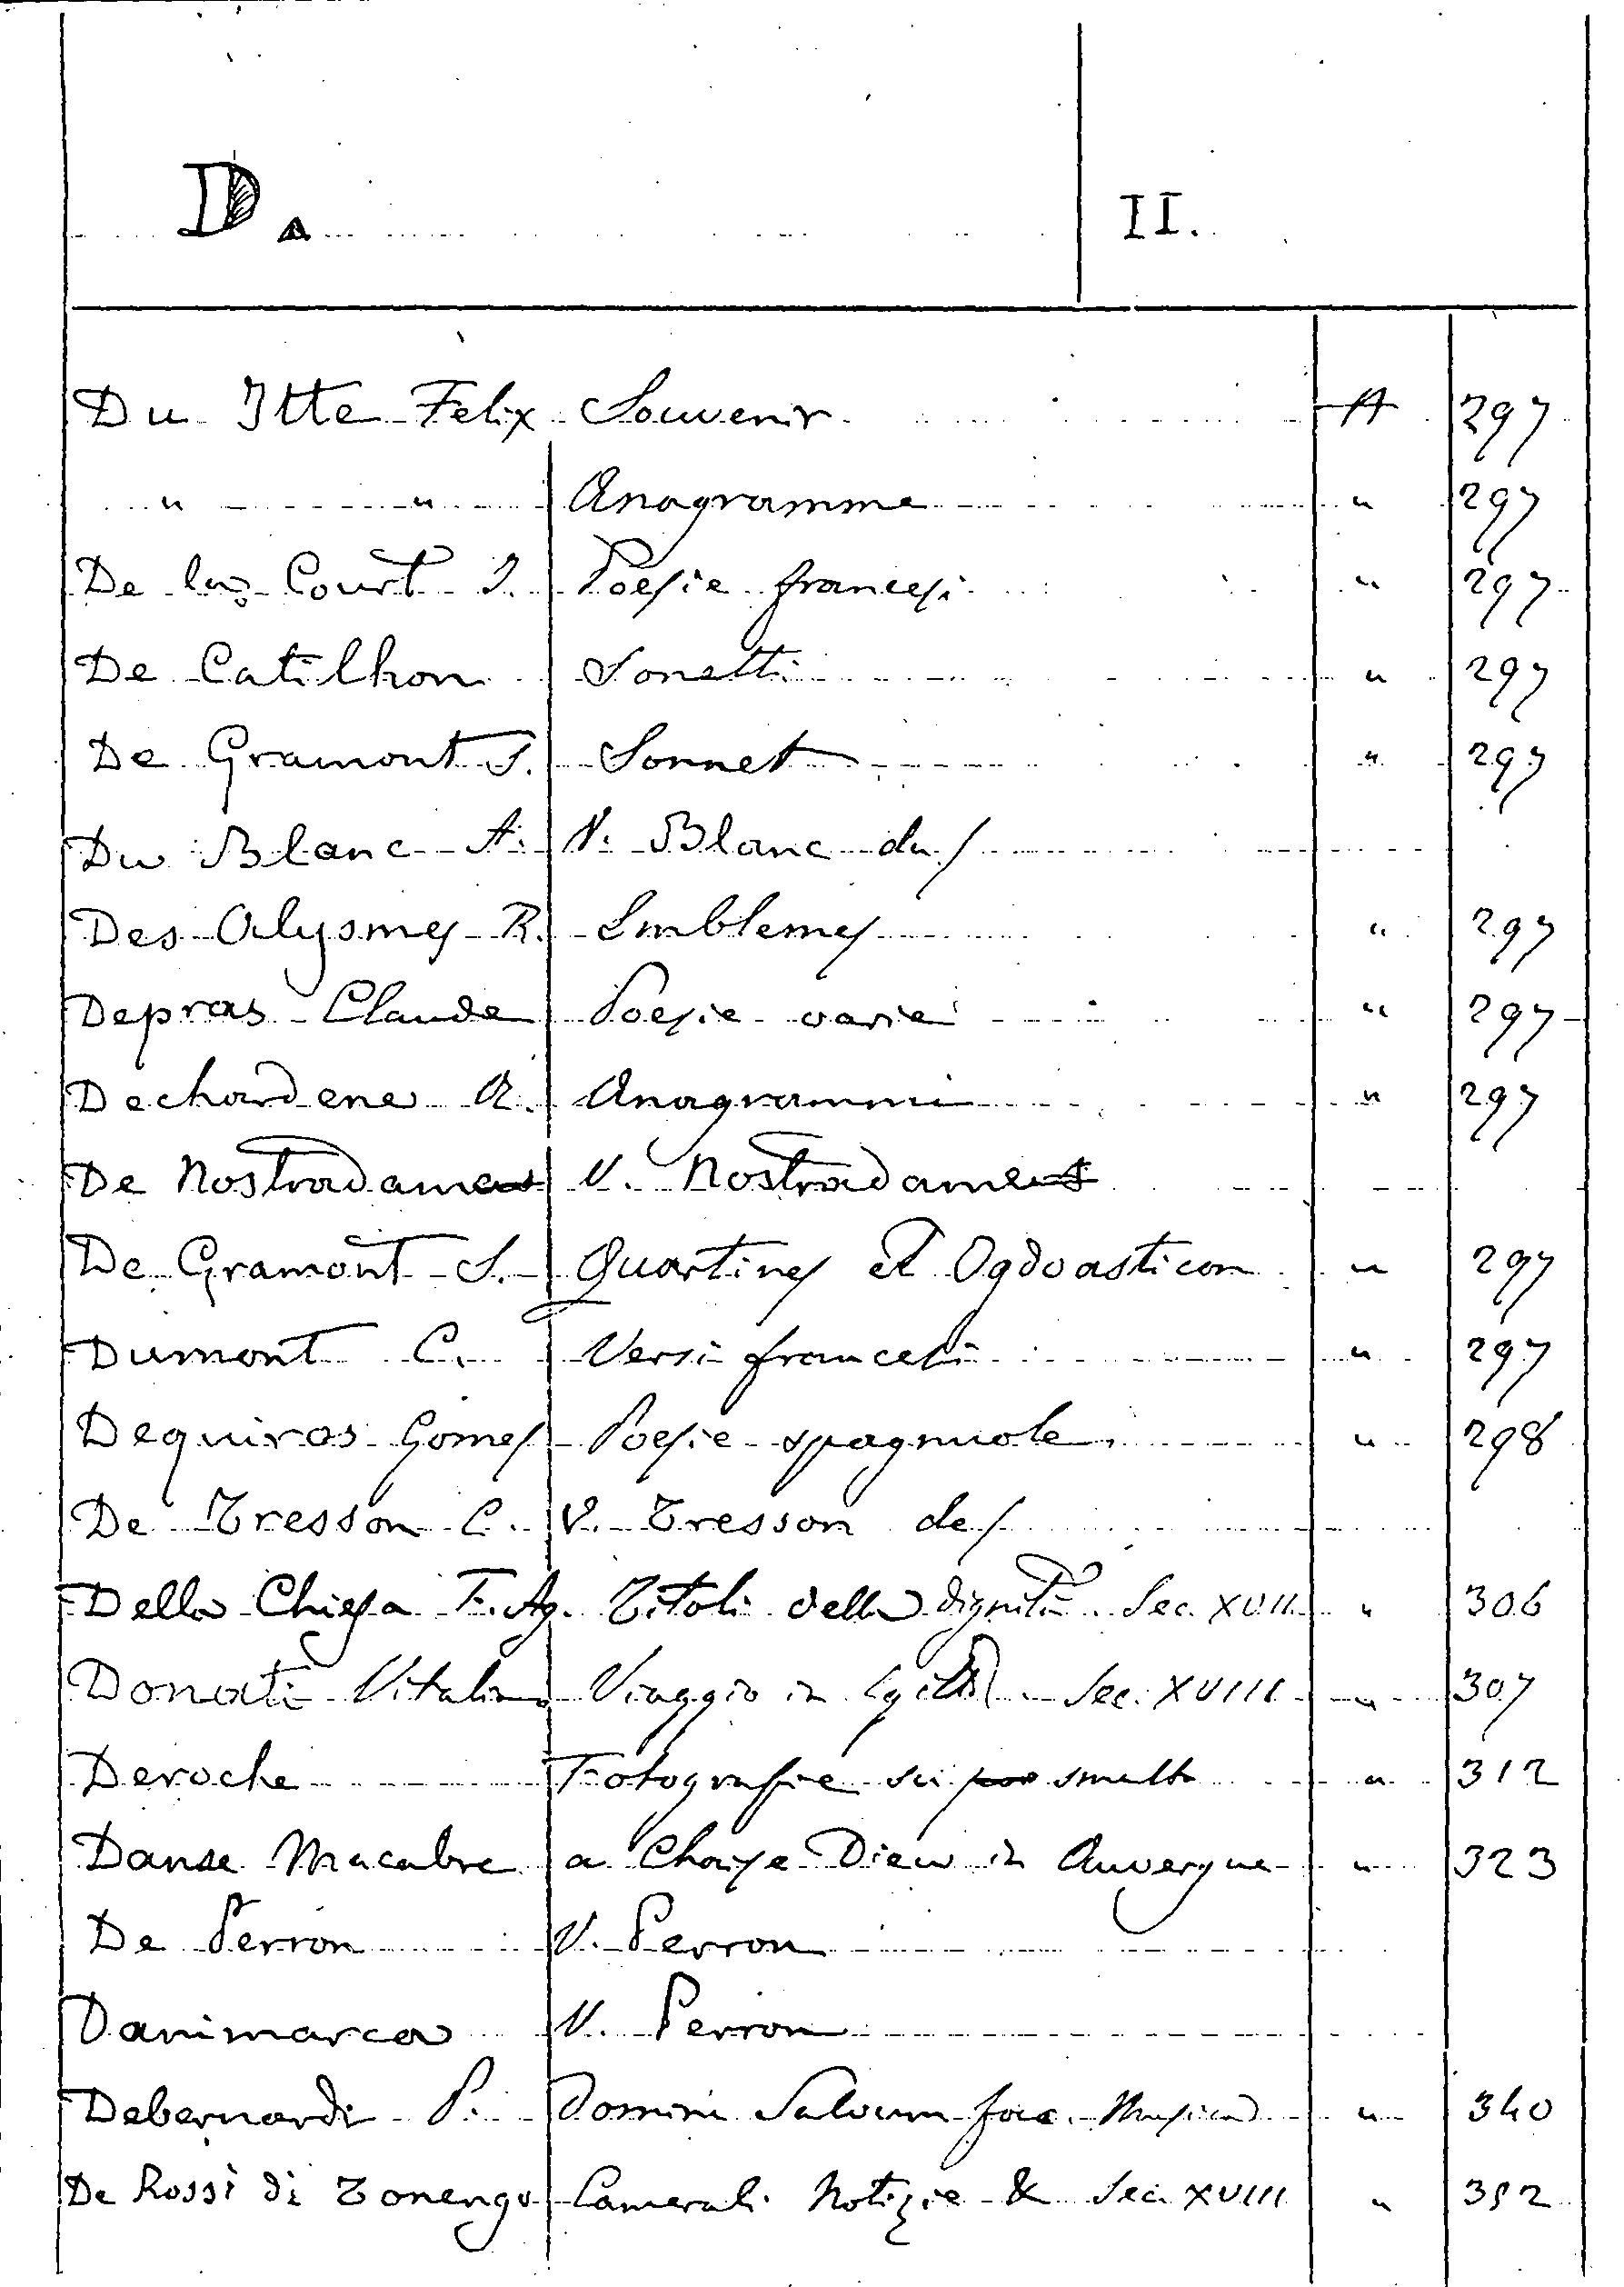 D. II.
Du Itte Felix Souvenir A 297
" " Anagramme " 297
De la Court J. Poesie francesi " 297
De Catilhon Sonetti " 297
De Gramont S. Sonnet " 297
Du Blanc A. V. Blanc du
Des Alysmes R. Emblemes " 297
Depras Claude Poesie varie " 297
Dechardene A. Anagrammi " 297
De Nostradamens V. Nostradamens
De Gramont S. Quartines et Ogdoasticon " 297
Dumont C. Versi francesi " 297
Dequiros Gomes Poesie spagnuole " 298
De Tresson C. V. Tresson de
Della Chiesa F. Ag. Titoli della dignità Sec. XVII " 306
Donati Vitalino Viaggio in Egitto Sec. XVIII " 307
Deroche Fotografie su smalto " 312
Danse Macabre a Chaise Dieu in Auvergne " 323
De Perron V. Perron
Danimarca V. Perron
Debernardi P. Domine Salvum fac. Musica " 340
De Rossi di Tonengo Camerali Notizie & Sec. XVIII " 352